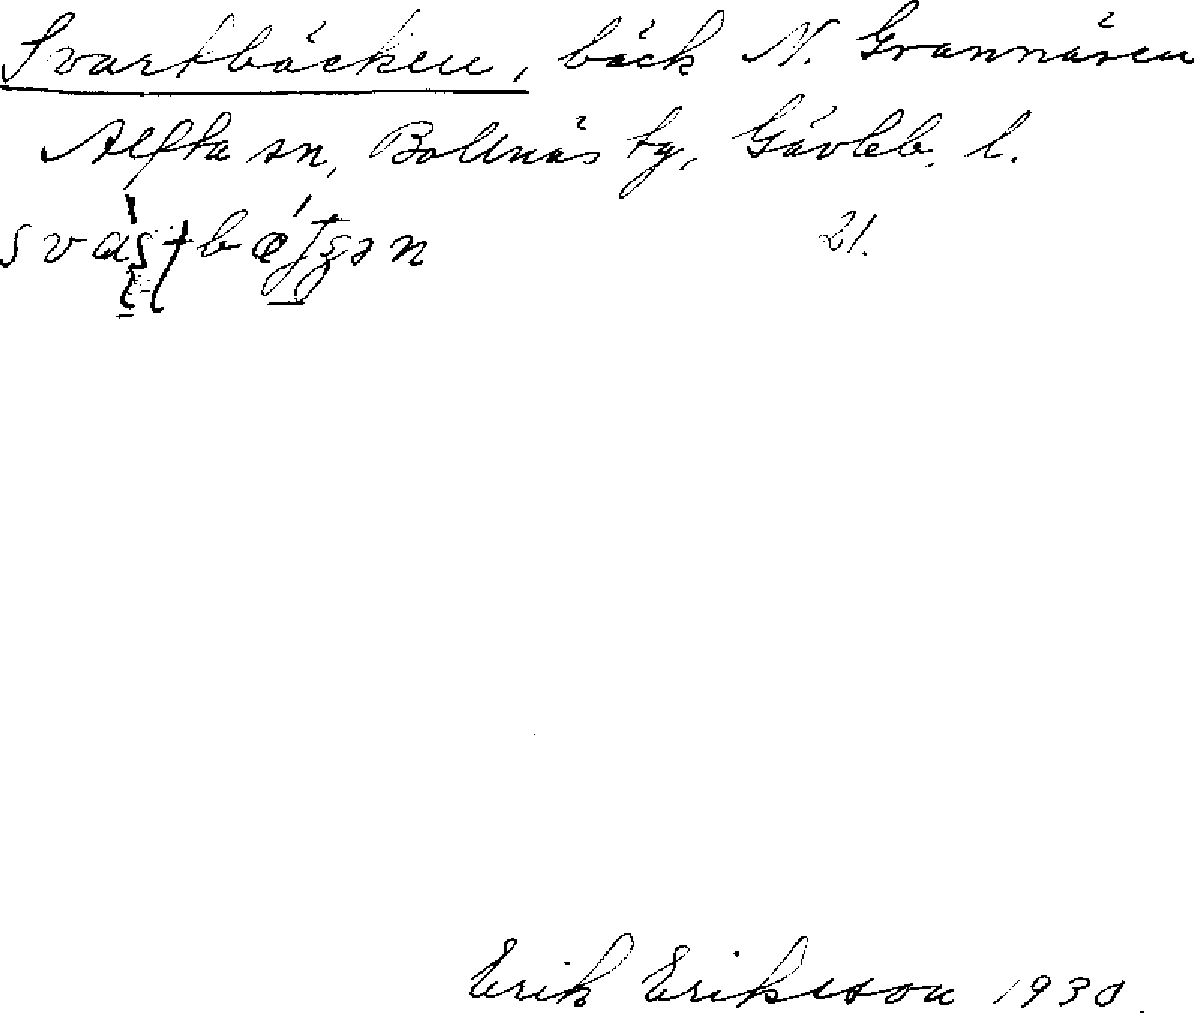 Svartbäcken, bäck N. Grannåsen
Alfta sn, Bollnäs tg, Gävleb. l.
21.
Erik Eriksson 1930.